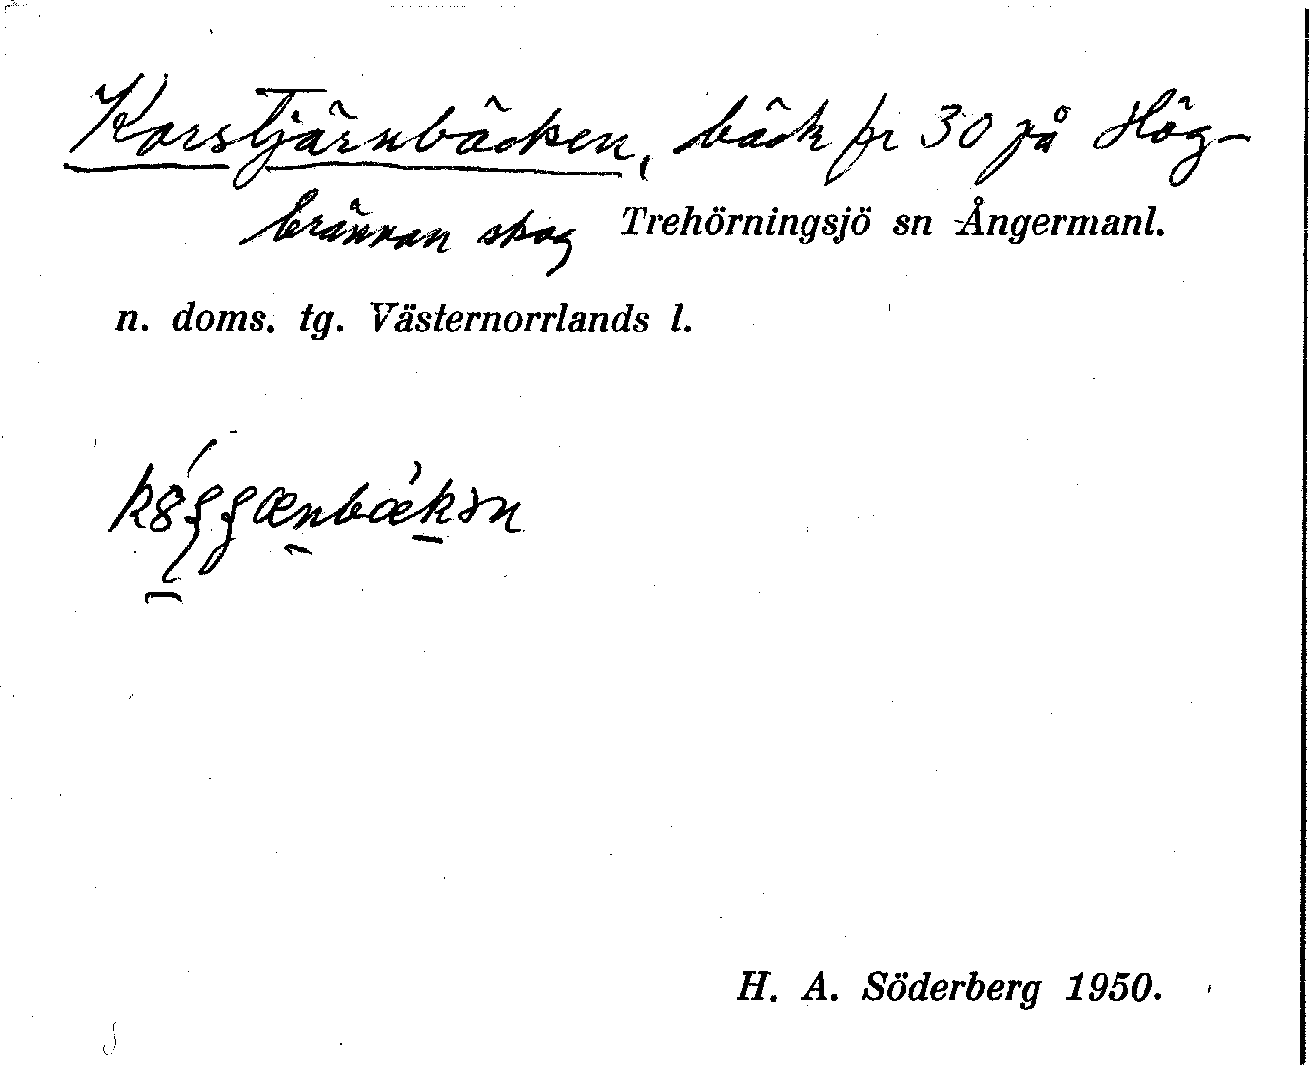 Korstjärnbäcken, bäck fr 30 på Hög-
brännan skog Trehörningsjö sn Ångermanl.
n. doms. tg. Västernorrlands l.
H. A. Söderberg 1950.